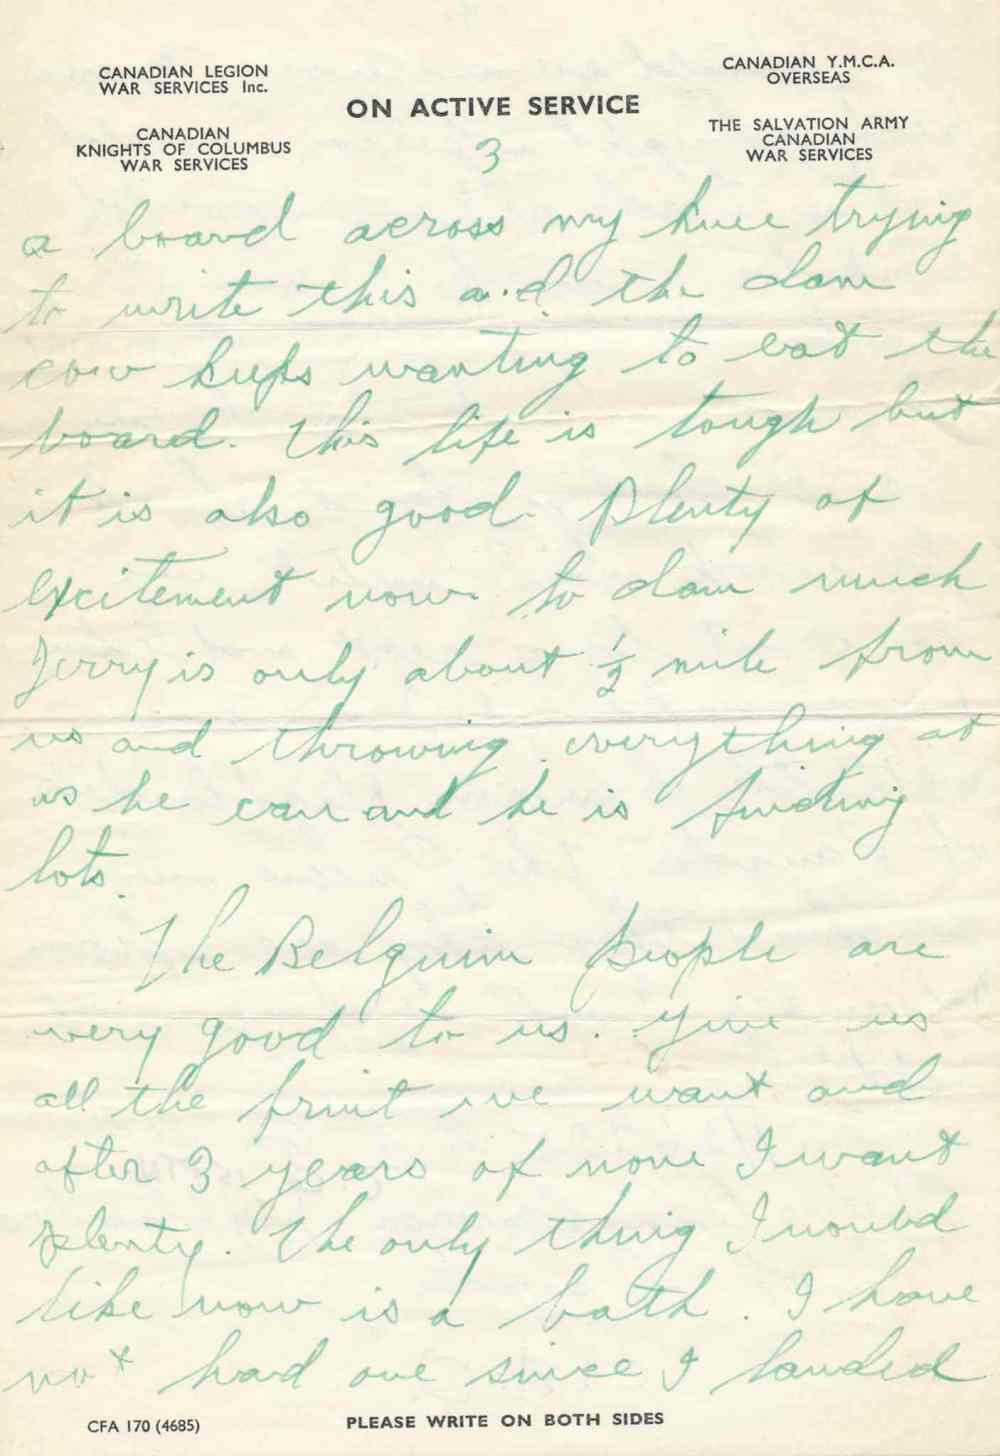 CANADIAN LEGION
WAR SERVICES Inc.
CANADIAN
KNIGHTS OF COLUMBUS
WAR SERVICES
ON ACTIVE SERVICE
CANADIAN Y.M.C.A.
OVERSEAS
THE SALVATION ARMY
CANADIAN
WAR SERVICES
3
a board across my knee trying
to write this and the dam
cow keeps wanting to eat the
board. This life is tough but
it is also good. Plenty of
excitement now. to dam much
Jerry is only about ½ mile from
us and throwing everything at
us he can and he is finding
lots.
The Belguim people are
very good to us. Give us
all the fruit we want and
after 3 years of none I want
plenty. The only thing I would
like now is a bath. I have
not had one since I landed
CFA 170 (4685)
PLEASE WRITE ON BOTH SIDES